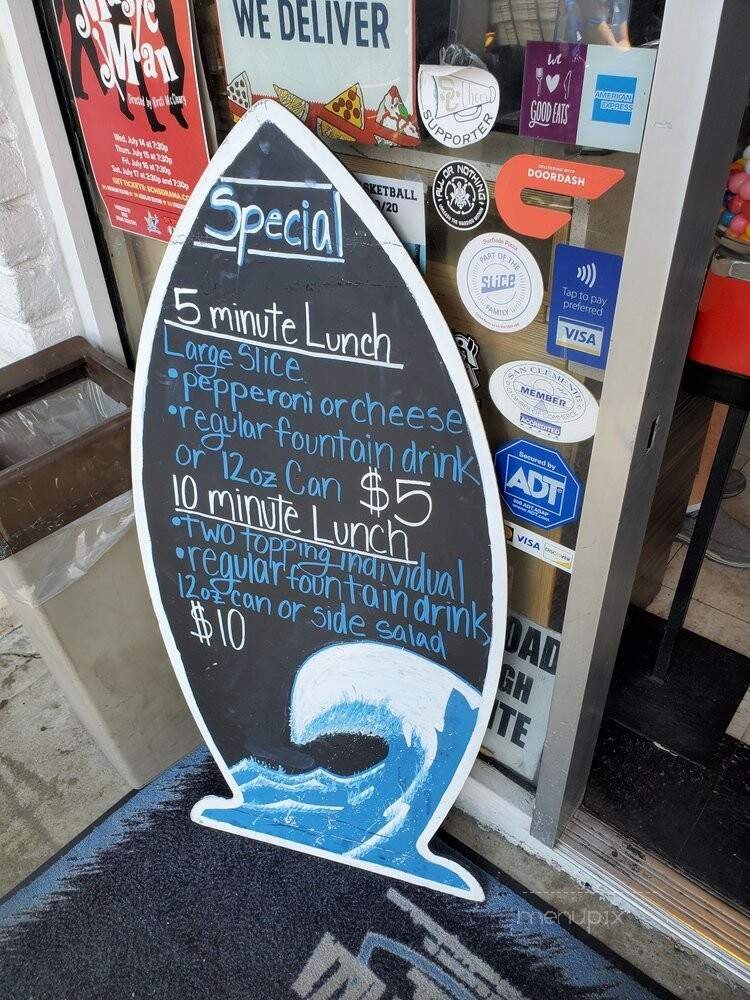 Music
Man
Directed by Kirsti McCleary
Wed. July 14 at 7:30p
Thurs. July 15 at 7:30p
Fri. July 16 at 7:30p
Sat. July 17 at 2:30p and 7:30p
GET TICKETS: SCHSDRAMA.C
WE DELIVER
SUPPORTER
WE
GOOD EATS
AMERICAN
EXPRESS
ALL OR NOTHING
DELIVERING WITH
DOORDASH
SKETBALL
/20
Surfside Pizza
PART OF THE
SLICE
FAMILY
Tap to pay
preferred
VISA
SAN CLEMENTE
MEMBER
CHAMBER OF COMMERCE
ACCREDITED
Secured by
ADT
800.ADT.ASAP
www.ADT.com
VISA DISCOVER
OAD
GH
TE
Special
5 minute Lunch
Large Slice
•pepperoni or cheese
•regular fountain drink
or 12oz Can $5
10 minute Lunch
•two topping individual
•regular fountain drink,
12oz can or side salad
$10
menupix